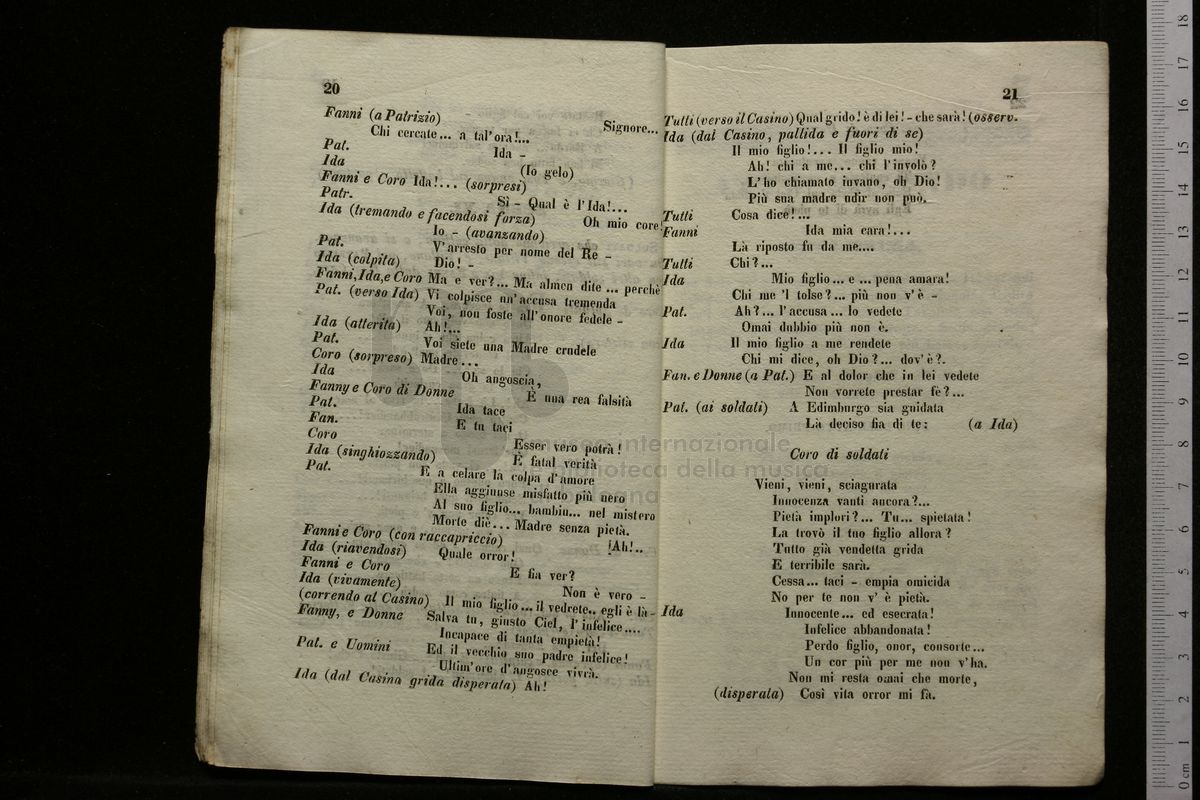 20
Fanni (a Patrizio) - Signore...
Chi cercate... a tal'ora!...
Pat. Ida -
Ida (Io gelo)
Fanni e Coro Ida!... (sorpresi)
Patr. Sì - Qual è l'Ida!...
Ida (tremando e facendosi forza) Oh mio core!
Io - (avanzando)
Pat. V'arresto per nome del Re -
Ida (colpita) Dio! -
Fanni, Ida, e Coro Ma e ver?... Ma almen dite ... perchè
Pat. (verso Ida) Vi colpisce un'accusa tremenda
Voi, non foste all'onore fedele -
Ida (atterita) Ah!...
Pat. Voi siete una Madre crudele
Coro (sorpreso) Madre...
Ida Oh angoscia,
Fanny e Coro di Donne È una rea falsità
Pat. Ida tace
Fan. E tu taci
Coro Esser vero potrà!
Ida (singhiozzando) È fatal verità
Pat. E a celare la colpa d'amore
Ella aggiunse misfatto più nero
Al suo figlio... bambin... nel mistero
Morte diè... Madre senza pietà.
Fanni e Coro (con raccapriccio) Ah!..
Ida (riavendosi) Quale orror!
Fanni e Coro E fia ver?
Ida (vivamente) Non è vero -
(correndo al Casino) Il mio figlio... il vedrete.. egli è là -
Fanny, e Donne Salva tu, giusto Ciel, l'infelice....
Incapace di tanta empietà!
Pat. e Uomini Ed il vecchio suo padre infelice!
Ultim'ore d'angosce vivrà.
Ida (dal Casino grida disperata) Ah!
21
Tutti (verso il Casino) Qual grido! è di lei! - che sarà! (osserv.
Ida (dal Casino, pallida e fuori di se)
Il mio figlio!... Il figlio mio!
Ah! chi a me... chi l'involò?
L'ho chiamato invano, oh Dio!
Più sua madre udir non può.
Tutti Cosa dice!...
Fanni Ida mia cara!...
Là riposto fu da me....
Tutti Chi?...
Ida Mio figlio... e ... pena amara!
Chi me 'l tolse?... più non v'è -
Pat. Ah?... l'accusa... lo vedete
Omai dubbio più non è.
Ida Il mio figlio a me rendete
Chi mi dice, oh Dio?... dov'è?.
Fan. e Donne (a Pat.) E al dolor che in lei vedete
Non vorrete prestar fè?...
Pat. (ai soldati) A Edimburgo sia guidata
Là deciso fia di te: (a Ida)
Coro di soldati
Vieni, vieni, sciagurata
Innocenza vanti ancora?...
Pietà implori?... Tu... spietata!
La trovò il tuo figlio allora?
Tutto già vendetta grida
E terribile sarà.
Cessa... taci - empia omicida
No per te non v'è pietà.
Ida Innocente... ed esecrata!
Infelice abbandonata!
Perdo figlio, onor, consorte...
Un cor più per me non v'ha.
Non mi resta omai che morte,
(disperata) Così vita orror mi fà.
museo internazionale
e biblioteca della musica
0 cm 1 2 3 4 5 6 7 8 9 10 11 12 13 14 15 16 17 18